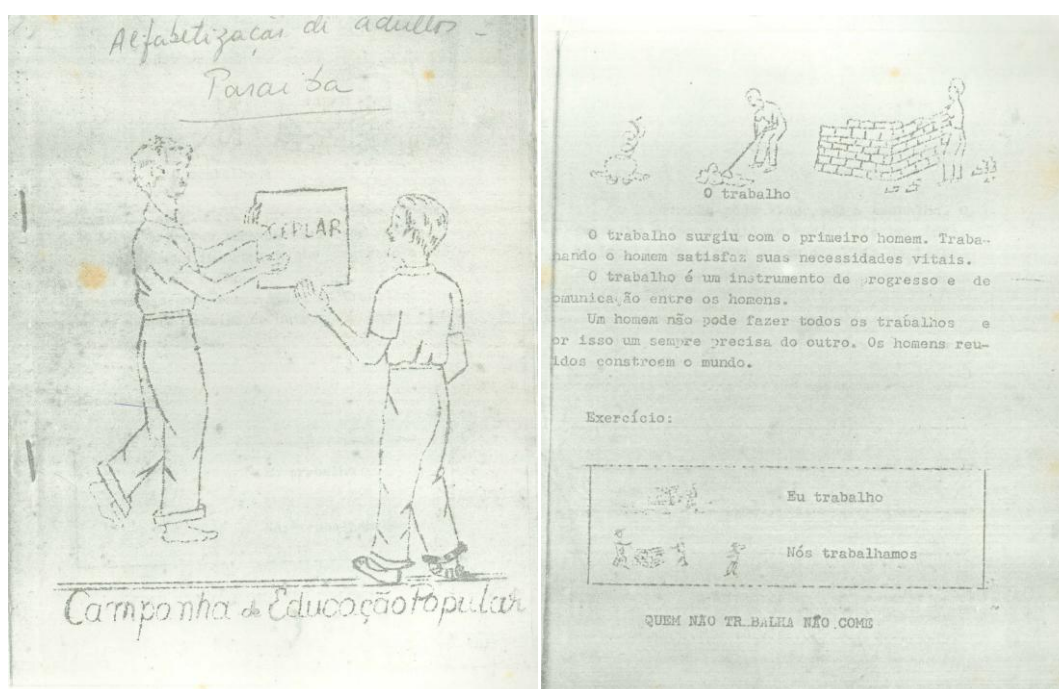 Alfabetização de adultos -
Paraíba
CEPLAR
Campanha de Educação Popular
O trabalho
O trabalho surgiu com o primeiro homem. Traba-
hando o homem satisfaz suas necessidades vitais.
O trabalho é um instrumento de progresso e de
omunicação entre os homens.
Um homem não pode fazer todos os trabalhos e
or isso um sempre precisa do outro. Os homens reu-
idos constroem o mundo.
Exercício:
Eu trabalho
Nós trabalhamos
QUEM NÃO TRABALHA NÃO COME